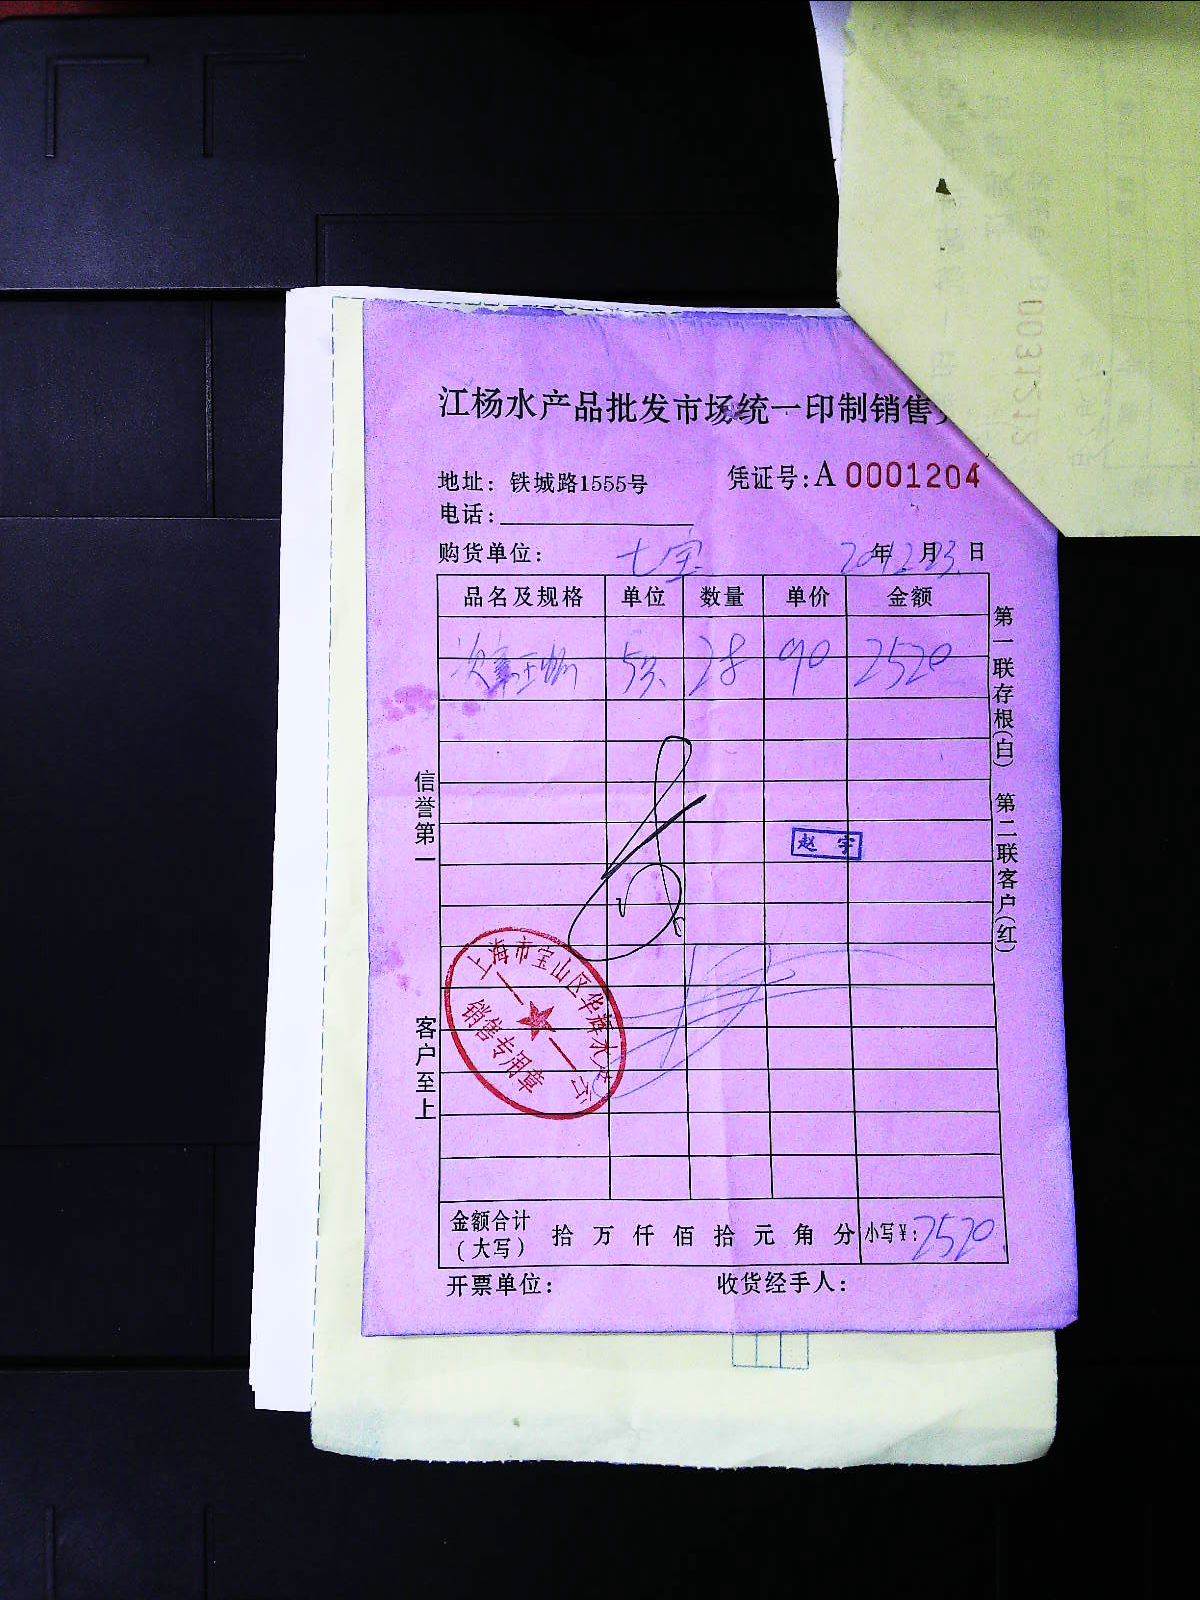 江杨水产品批发市场统一印制销售
地址：铁城路1555号
凭证号：A 0001204
电话：
购货单位：七宝
年12月23日
品名及规格 单位 数量 单价 金额
28 90 2520
赵宇
信誉第一
客户至上
第一联存根(白) 第二联客户(红)
上海市宝山区华辉水产行
销售专用章
金额合计（大写） 拾 万 仟 佰 拾 元 角 分 小写¥：2520
开票单位： 收货经手人：
0031213